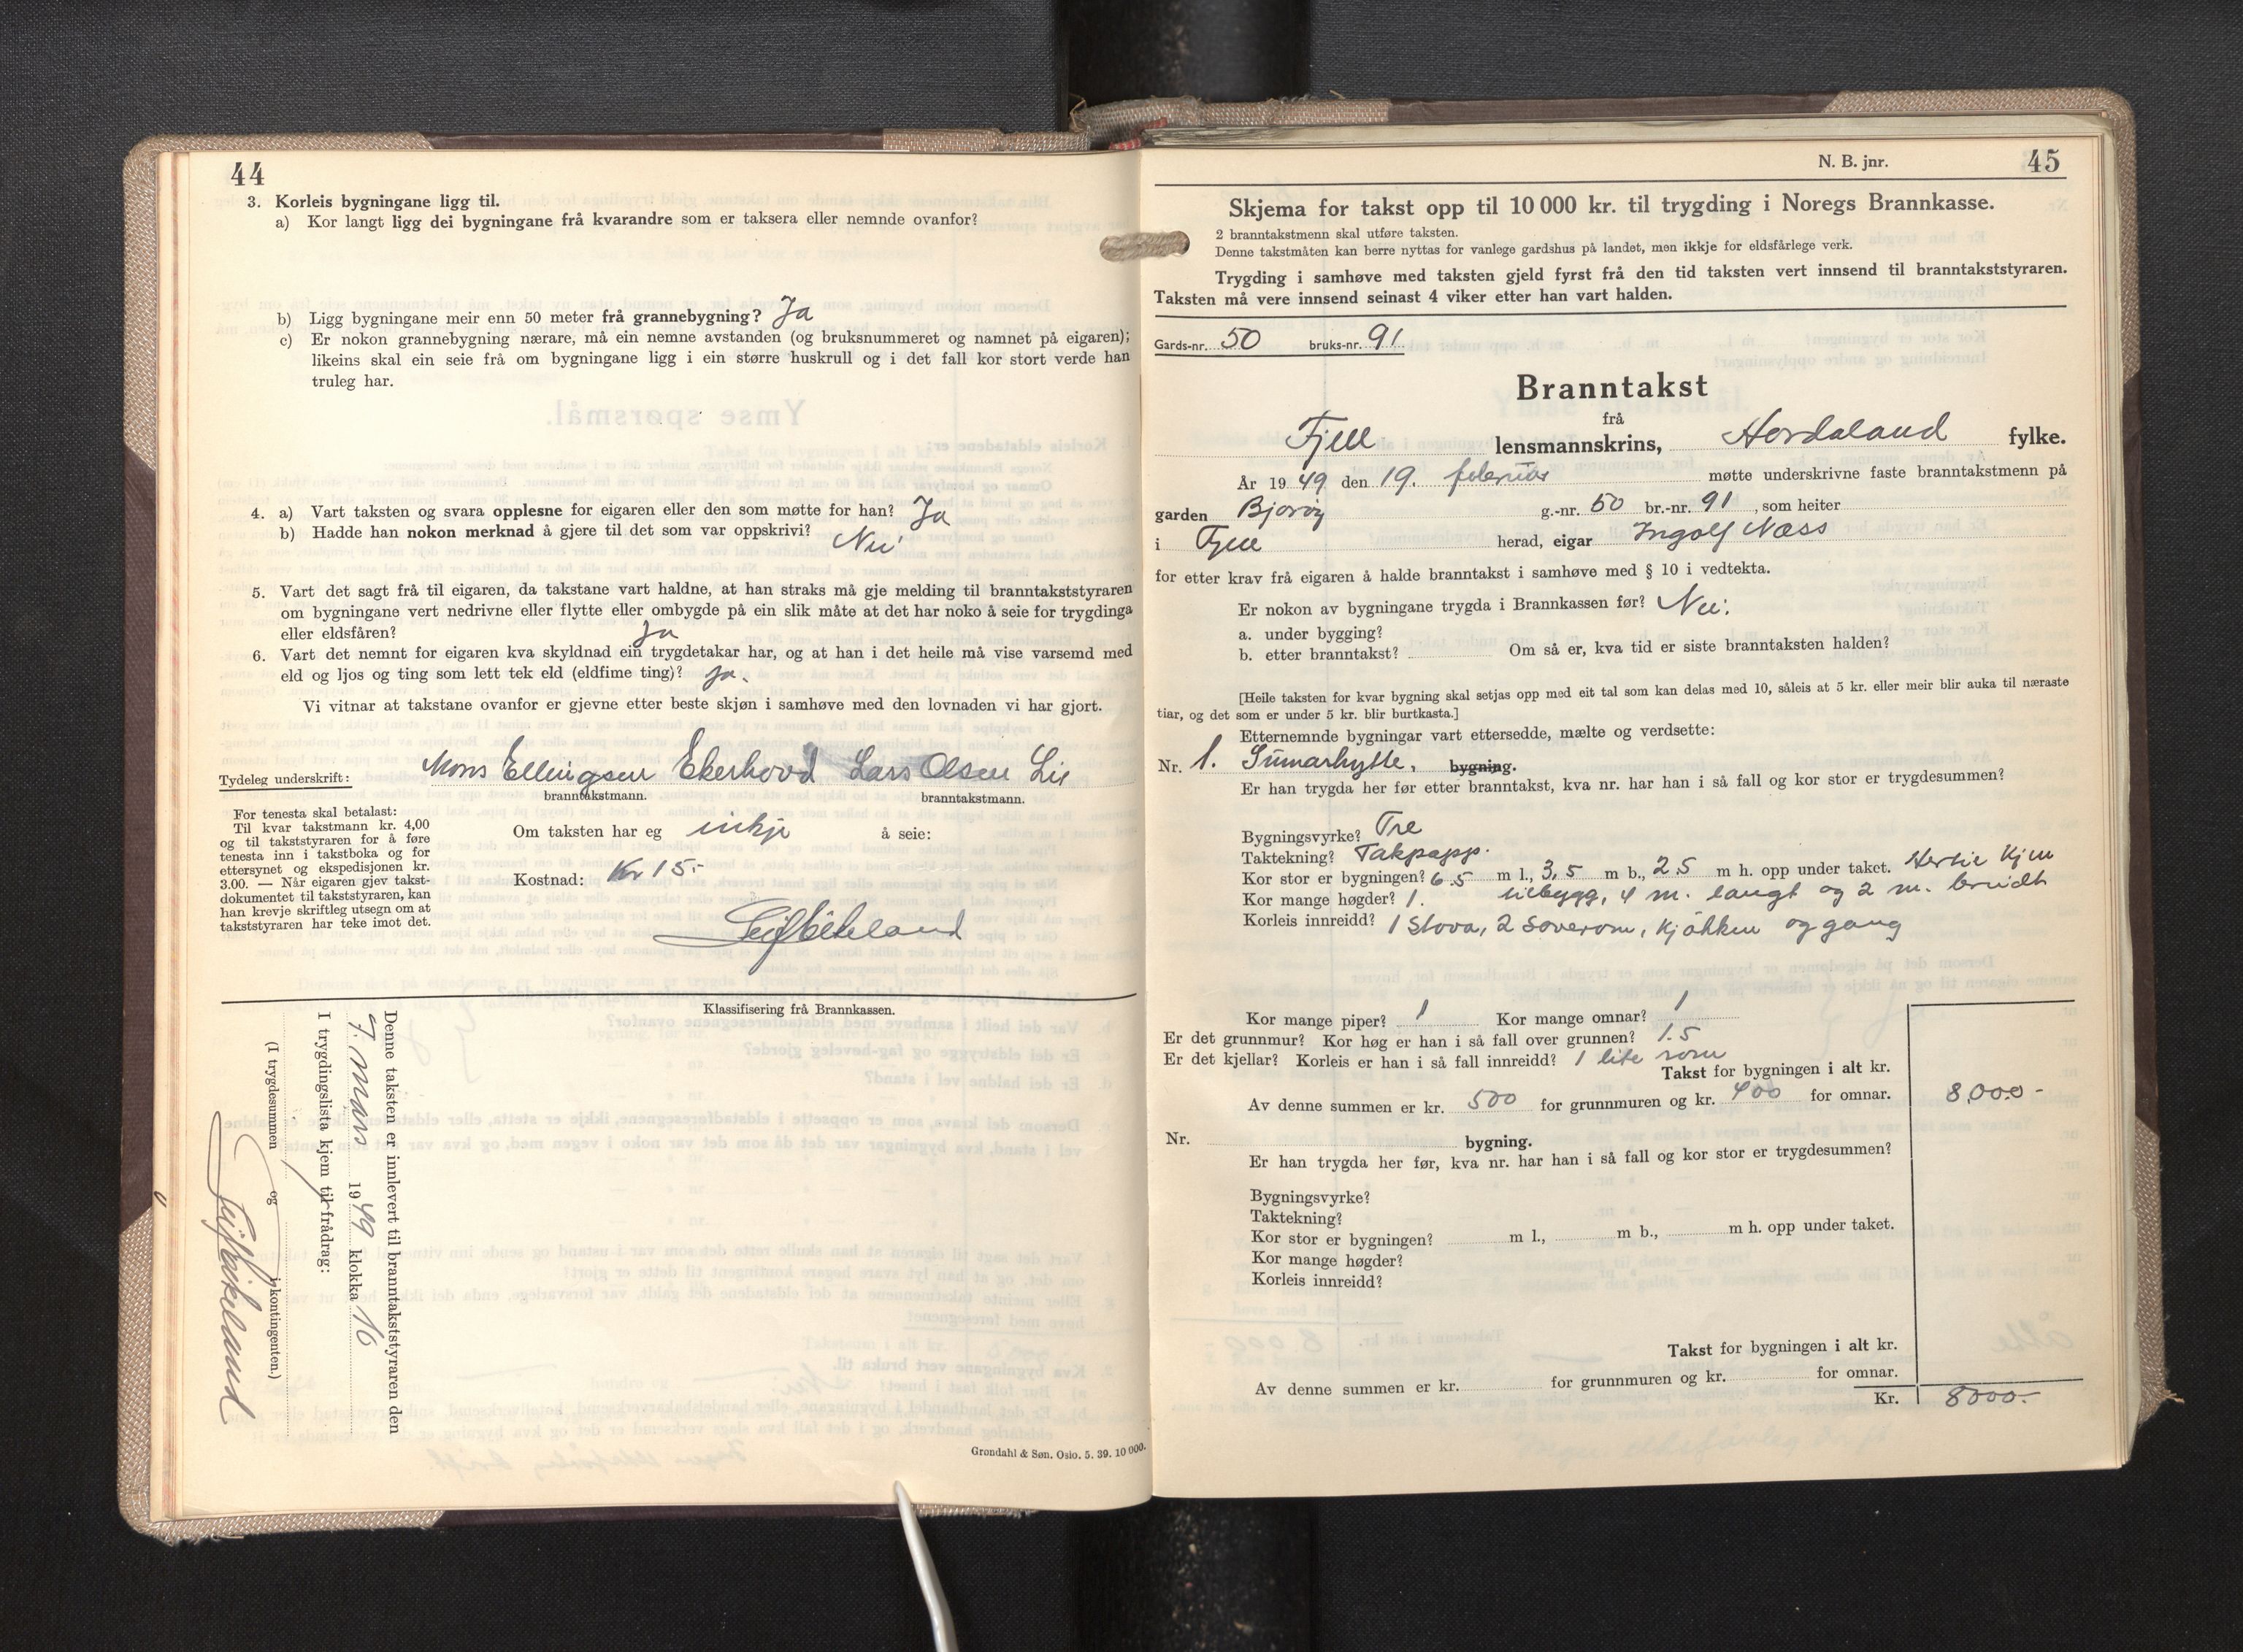 44
3. Korleis bygningane ligg til.
a) Kor langt ligg dei bygningane frå kvarandre som er taksera eller nemnde ovanfor?
b) Ligg bygningane meir enn 50 meter frå grannebygning? Ja
c) Er nokon grannebygning nærare, må ein nemne avstanden (og bruksnummeret og namnet på eigaren);
likeins skal ein seie frå om bygningane ligg i ein større huskrull og i det fall kor stort verde han
truleg har.
4. a) Vart taksten og svara opplesne for eigaren eller den som møtte for han? Ja
b) Hadde han nokon merknad å gjere til det som var oppskrivi? Nei
5. Vart det sagt frå til eigaren, da takstane vart haldne, at han straks må gje melding til branntakststyraren
om bygningane vert nedrivne eller flytte eller ombygde på ein slik måte at det har noko å seie for trygdinga
eller eldsfåren? Ja
6. Vart det nemnt for eigaren kva skyldnad ein trygdetakar har, og at han i det heile må vise varsemd med
eld og ljos og ting som lett tek eld (eldfime ting)? Ja.
Vi vitnar at takstane ovanfor er gjevne etter beste skjøn i samhøve med den lovnaden vi har gjort.
Tydeleg underskrift: Mons Ellingsen Ekerhovd Lars Olsen Lie
branntakstmann. branntakstmann.
For tenesta skal betalast:
Til kvar takstmann kr. 4,00
og til takststyraren for å føre
tenesta inn i takstboka og for
ettersynet og ekspedisjonen kr.
3.00. — Når eigaren gjev takst-
dokumentet til takststyraren, kan
han krevje skriftleg utsegn om at
takststyraren har teke imot det.
Om taksten har eg inkje å seie:
Kostnad: Kr 15.-
Klassifisering frå Brannkassen.
Denne taksten er innlevert til branntakststyraren den
7. mars 1949 klokka 16
I trygdingslista kjem til frådrag:
(I trygdesummen og i kontingenten.)
Grøndahl & Søn. Oslo. 5. 39. 10 000.
N. B. jnr. 45
Skjema for takst opp til 10 000 kr. til trygding i Noregs Brannkasse.
2 branntakstmenn skal utføre taksten.
Denne takstmåten kan berre nyttas for vanlege gardshus på landet, men ikkje for eldsfårlege verk.
Trygding i samhøve med taksten gjeld fyrst frå den tid taksten vert innsend til branntakststyraren.
Taksten må vere innsend seinast 4 viker etter han vart halden.
Gards-nr. 50 bruks-nr. 91.
Branntakst
frå
Fjell lensmannskrins, Hordaland fylke.
År 1949 den 19. februar møtte underskrivne faste branntakstmenn på
garden Bjorøy g.-nr. 50 br.-nr. 91, som heiter
i Fjell herad, eigar Ingolf Næss
for etter krav frå eigaren å halde branntakst i samhøve med § 10 i vedtekta.
Er nokon av bygningane trygda i Brannkassen før? Nei.
a. under bygging?
b. etter branntakst? Om så er, kva tid er siste branntaksten halden?
[Heile taksten for kvar bygning skal setjas opp med eit tal som kan delas med 10, såleis at 5 kr. eller meir blir auka til næraste
tiar, og det som er under 5 kr. blir burtkasta.]
Etternemnde bygningar vart ettersedde, mælte og verdsette:
Nr. 1. Sumarhytte, bygning.
Er han trygda her før etter branntakst, kva nr. har han i så fall og kor stor er trygdesummen?
Bygningsvyrke? Tre
Taktekning? Takpapp.
Kor stor er bygningen? 6.5 m l., 3,5 m b., 2.5 m h. opp under taket. Hertie kjem
Kor mange høgder? 1. tilbygg, 4 m. langt og 2 m. breidt
Korleis innreidd? 1 Stova, 2 soverom, kjøkken og gang
Kor mange piper? 1 Kor mange omnar? 1
Er det grunnmur? Kor høg er han i så fall over grunnen? 1.5
Er det kjellar? Korleis er han i så fall innreidd? 1 lite rom
Takst for bygningen i alt kr.
Av denne summen er kr. 500 for grunnmuren og kr. 400 for omnar. 8,000-
Nr. bygning.
Er han trygda her før, kva nr. har han i så fall og kor stor er trygdesummen?
Bygningsvyrke?
Taktekning?
Kor stor er bygningen? m l., m b., m h. opp under taket.
Kor mange høgder?
Korleis innreidd?
Takst for bygningen i alt kr.
Av denne summen er kr. for grunnmuren og kr. for omnar.
Kr. 8000.-